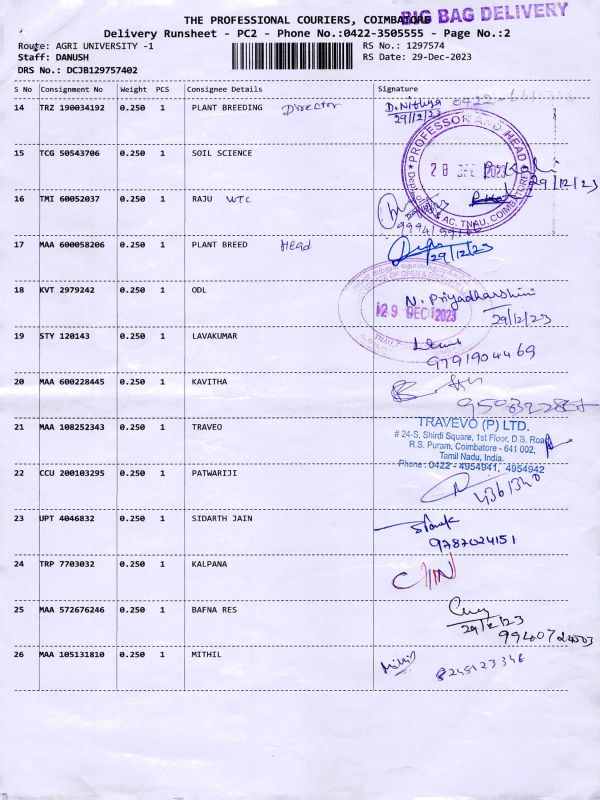 BIG BAG DELIVERY
THE PROFESSIONAL COURIERS, COIMBATORE
Delivery Runsheet - PC2 - Phone No.:0422-3505555 - Page No.:2
Route: AGRI UNIVERSITY -1 RS No.: 1297574
Staff: DANUSH RS Date: 29-Dec-2023
DRS No.: DCJB129757402
S No Consignment No Weight PCS Consignee Details Signature
14 TRZ 190034192 0.250 1 PLANT BREEDING Director D. Nithya 0422-
29/12/23
PROFESSOR AND HEAD
15 TCG 50543706 0.250 1 SOIL SCIENCE
28 DEC 2023
29/12/23
& AC, TNAU, COIMBATORE
16 TMI 60052037 0.250 1 RAJU WTC
17 MAA 600058206 0.250 1 PLANT BREED Head
29/12/23
OF OPEN &
18 KVT 2979242 0.250 1 ODL N. Priyadharshini
29 DEC 2023
29/12/23
19 STY 120143 0.250 1 LAVAKUMAR
9791904469
20 MAA 600228445 0.250 1 KAVITHA
21 MAA 108252343 0.250 1 TRAVEO
TRAVEVO (P) LTD.
# 24-S, Shirdi Square, 1st Floor, D.B. Road
R.S. Puram, Coimbatore - 641 002,
Tamil Nadu, India.
Phone: 0422 - 4954941, 4954942
22 CCU 200103295 0.250 1 PATWARIJI
4361340
23 UPT 4046832 0.250 1 SIDARTH JAIN
9787024151
24 TRP 7703032 0.250 1 KALPANA
25 MAA 572676246 0.250 1 BAFNA RES
29/12/23
26 MAA 105131810 0.250 1 MITHIL Mithil 8245123346